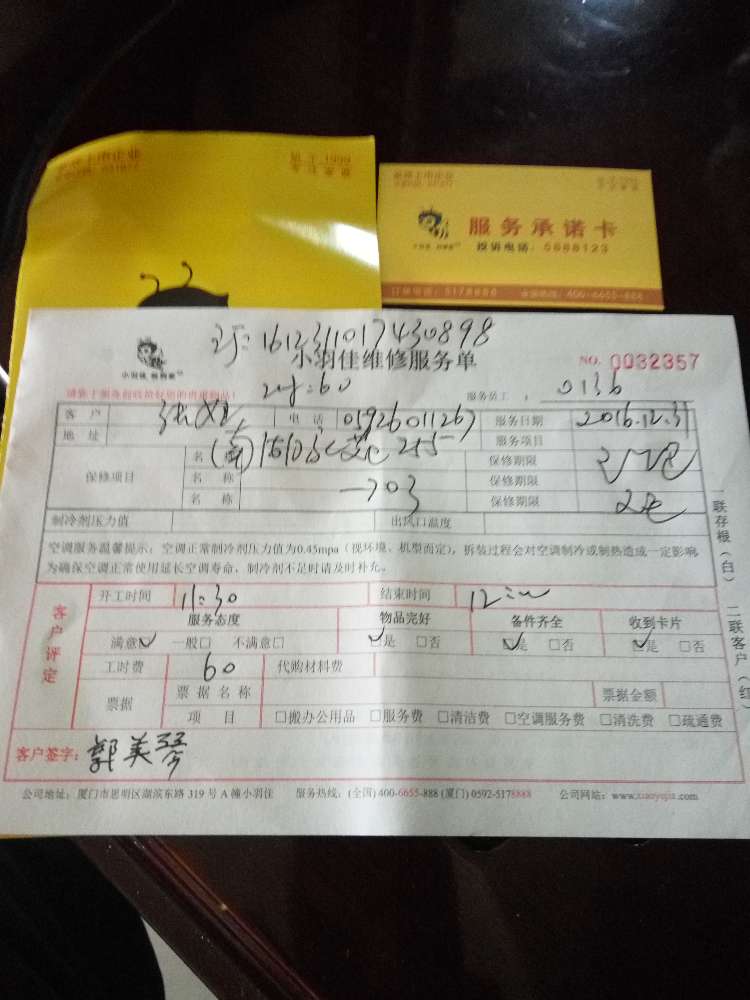 服务承诺卡
投诉电话：5888123
订单电话：5178888 全国热线：400-6655-888
161231101743 0898
小羽佳维修服务单
NO. 0032357
小羽佳 蚂蚁搬家
服务员工： 0136
客户 电话 05926011267 服务日期 2016.12.31
地址 服务项目
保修项目 名称 保修期限
名称 保修期限
名称 保修期限
制冷剂压力值 出风口温度
空调服务温馨提示：空调正常制冷剂压力值为0.45mpa（视环境、机型而定），拆装过程会对空调制冷或制热造成一定影响
为确保空调正常使用延长空调寿命，制冷剂不足时请及时补充。
客户评定
开工时间 11:30 结束时间
服务态度 物品完好 备件齐全 收到卡片
满意☑ 一般□ 不满意□ ☑是 □否 ☑是 □否 ☑是 □否
工时费 60 代购材料费
票据 票据名称 票据金额
项目 □搬办公用品 □服务费 □清洁费 □空调服务费 □清洗费 □疏通费
客户签字：郭美琴
一联存根（白） 二联客户（红）
公司地址：厦门市思明区湖滨东路319号A幢小羽佳 服务热线：(全国)400-6655-888 (厦门) 0592-5178888 公司网站：www.xiaoyujia.com